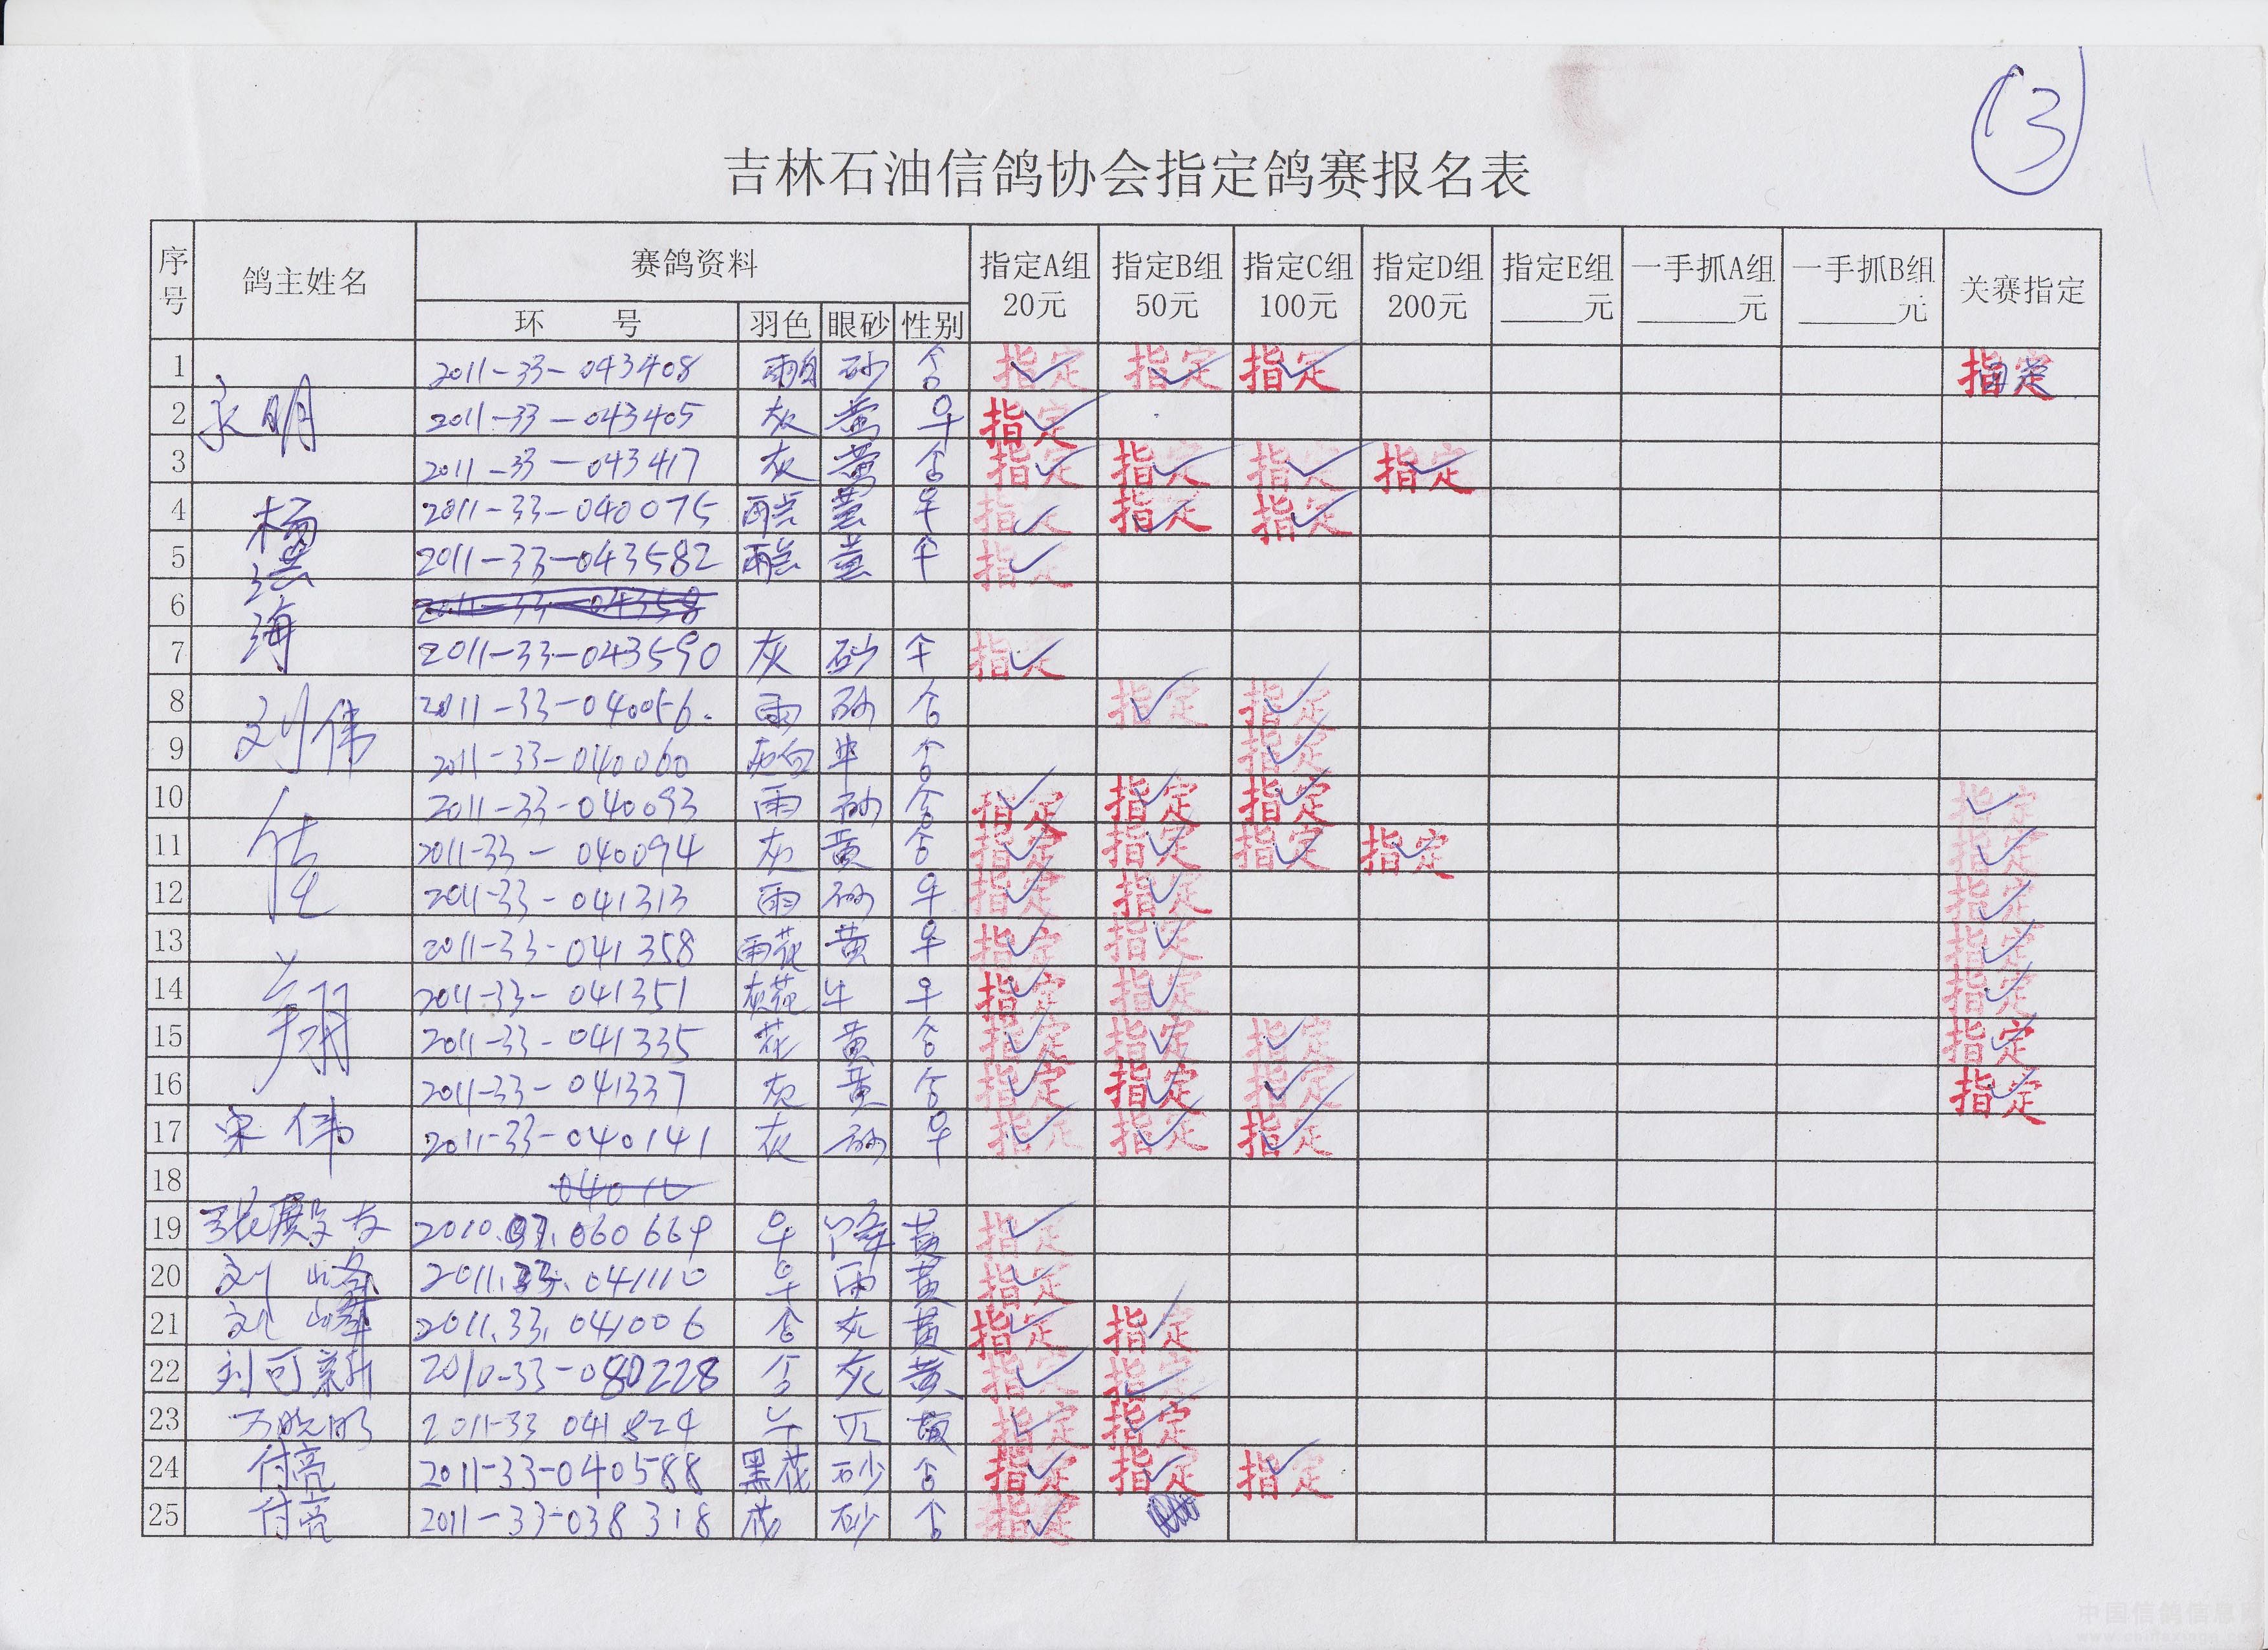 13
吉林石油信鸽协会指定鸽赛报名表
序号 鸽主姓名 赛鸽资料 指定A组 20元 指定B组 50元 指定C组 100元 指定D组 200元 指定E组 ____元 一手抓A组 ____元 一手抓B组 ____元 关赛指定
环 号 羽色 眼砂 性别
1 2011-33-043408 砂 指定 指定 指定 指定
永明
2 2011-33-043405 灰 黄 指定
3 2011-33-043417 灰 黄 指定 指定 指定 指定
4 2011-33-040075 雨点 黄 指定 指定 指定
杨
5 2011-33-043582 雨点 黄 指定
6
海
7 2011-33-043590 灰 砂 指定
8 2011-33-040056 雨 砂 指定 指定
刘伟
9 2011-33-040060 指定
10 2011-33-040093 雨 砂 指定 指定 指定 指定
11 2011-33-040094 灰 黄 指定 指定 指定 指定 指定
12 2011-33-041313 雨 砂 指定 指定 指定
13 2011-33-041358 雨花 黄 指定 指定 指定
14 2011-33-041351 灰花 牛 指定 指定 指定
翔
15 2011-33-041335 花 黄 指定 指定 指定 指定
16 2011-33-041337 灰 黄 指定 指定 指定 指定
17 宋伟 2011-33-040141 灰 砂 指定 指定 指定
18
19 张殿友 2010.07.060669 绛 黄 指定
20 刘峰 2011.33.041110 雨 黄 指定
21 刘峰 2011.33.041006 灰 黄 指定 指定
22 刘可新 2010-33-080228 灰 黄 指定 指定
23 万晓明 2011-33 041824 黄 指定 指定
24 付亮 2011-33-040588 黑花 砂 指定 指定 指定
25 付亮 2011-33-038318 花 砂 指定
中国信鸽信息网